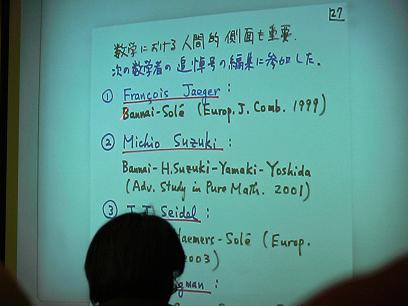 27
数学における人間的側面も重要.
次の数学者の追悼号の編集に参加した.
① François Jaeger :
Bannai-Solé (Europ. J. Comb. 1999)
② Michio Suzuki :
Bannai-H.Suzuki-Yamaki-Yoshida
(Adv. Study in Pure Math. 2001)
③ Seidel :
aemers-Solé (Europ.
2003)
igman :